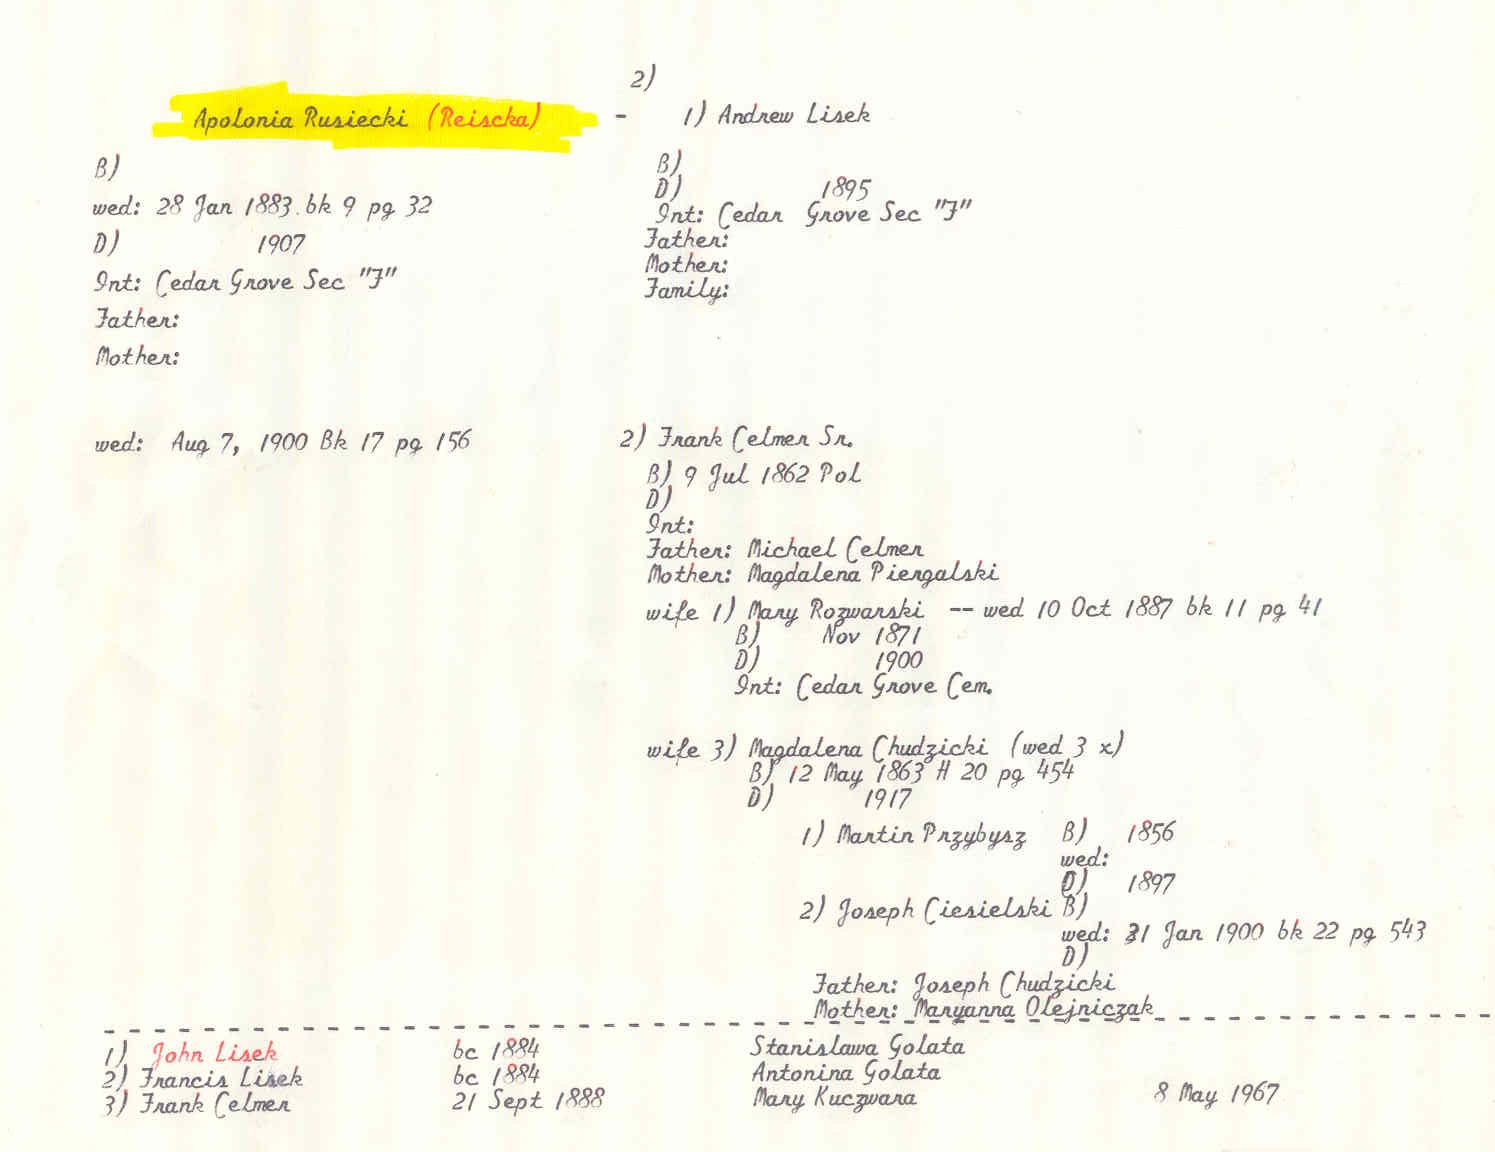 2)
Apolonia Rusiecki (Reiscka) - 1) Andrew Lisek
B)
wed: 28 Jan 1883. bk 9 pg 32
D) 1907
Int: Cedar Grove Sec "F"
Father:
Mother:
B)
D) 1895
Int: Cedar Grove Sec "F"
Father:
Mother:
Family:
wed: Aug 7, 1900 Bk 17 pg 156
2) Frank Celmer Sr.
B) 9 Jul 1862 Pol
D)
Int:
Father: Michael Celmer
Mother: Magdalena Piergalski
wife 1) Mary Rozwarski -- wed 10 Oct 1887 bk 11 pg 41
B) Nov 1871
D) 1900
Int: Cedar Grove Cem.
wife 3) Magdalena Chudzicki (wed 3 x)
B) 12 May 1863 # 20 pg 454
D) 1917
1) Martin Przybysz B) 1856
wed:
D) 1897
2) Joseph Ciesielski B)
wed: 31 Jan 1900 bk 22 pg 543
D)
Father: Joseph Chudzicki
Mother: Maryanna Olejniczak
1) John Lisek bc 1884 Stanislawa Golata
2) Francis Lisek bc 1884 Antonina Golata
3) Frank Celmer 21 Sept 1888 Mary Kuczwara 8 May 1967